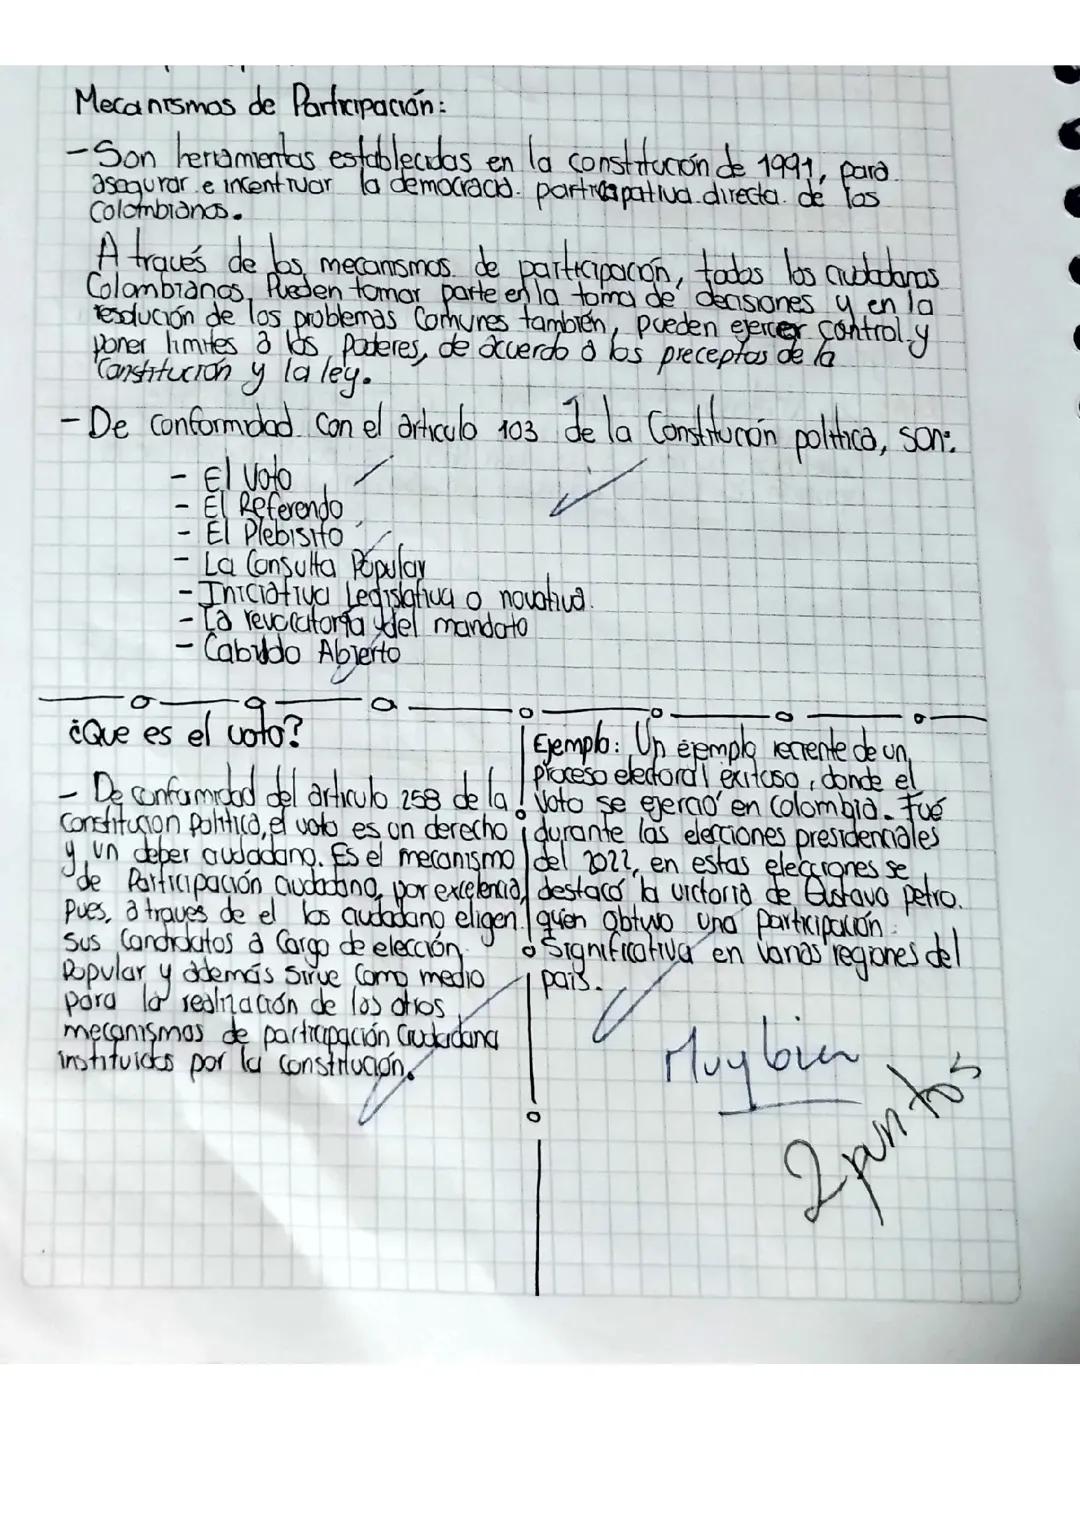 Mecanismos de Participación:
- Son herramientas establecidas en la constitución de 1991, para
asegurar e incentivar la democracia participativa directa de los
Colombianos.
A través de los mecanismos de participación, todos los ciudadanos
Colombianos, Pueden tomar parte en la toma de decisiones y en la
resolución de los problemas comunes también, pueden ejercer control y
poner limites a los poderes, de acuerdo a los preceptos de la
Constitución y la ley.
- De conformidad con el artículo 103 de la Constitución política, son:
- El Voto
- El Referendo
- El Plebisito
- La Consulta Popular
- Iniciativa Legislativa o novativa.
- La revocatoria del mandato
- Cabildo Abierto
¿Que es el voto?
- De conformidad del artículo 258 de la
Constitución Política, el voto es un derecho
y un deber ciudadano. Es el mecanismo
de Participación ciudadana, por excelencia,
pues, a traves de el los ciudadano eligen
sus Candidatos a Cargo de elección
Popular y además sirve como medio
para la realización de los otros
mecanismos de participación Ciudadana
instituidos por la constitución.
Ejemplo: Un ejemplo reciente de un
proceso electoral exitoso, donde el
voto se ejerció en Colombia. Fué
durante las elecciones presidenciales
del 2022, en estas elecciones se
destacó la victoria de Gustavo petro.
quien obtuvo una participación
Significativa en varias regiones del
país.
Muy bien
2 puntos